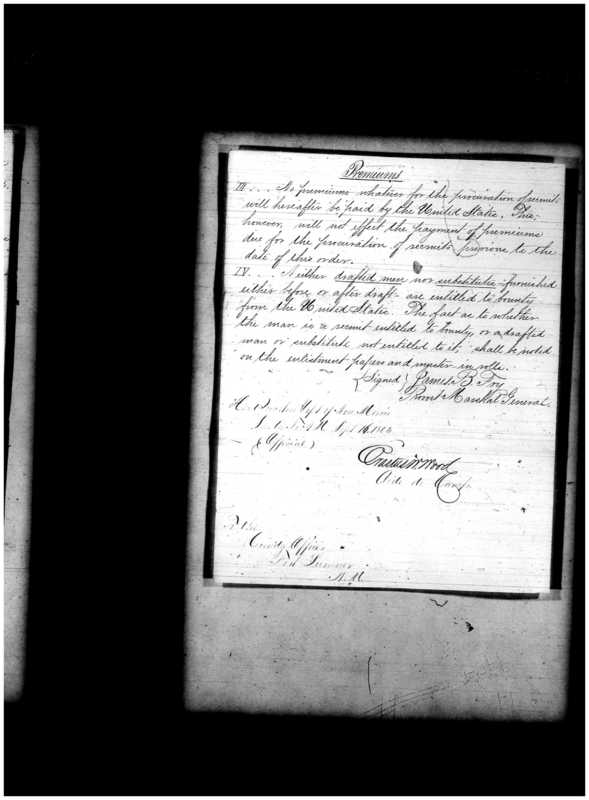 Premiums
III . . . No premiums whatever for the procuration of recruits
will hereafter be paid by the United States. This,
however, will not effect the payment of premiums
due for the procuration of recruits previous to the
date of this order.
IV . . . Neither drafted men nor substitutes furnished
either before or after draft are entitled to bounty
from the United States. The fact as to whether
the man is a recruit entitled to bounty, or a drafted
man or substitute not entitled to it, shall be noted
on the enlistment papers and muster in rolls.
(Signed) James B. Fry
Provost Marshal General.
Hd. Qrs. Dept. of New Mexico
Santa Fé N. M. Sept 16
(Official)
Erastus W. Wood
Aide de Camp
To the
Comdg Officer
Fort Sumner
N. M.